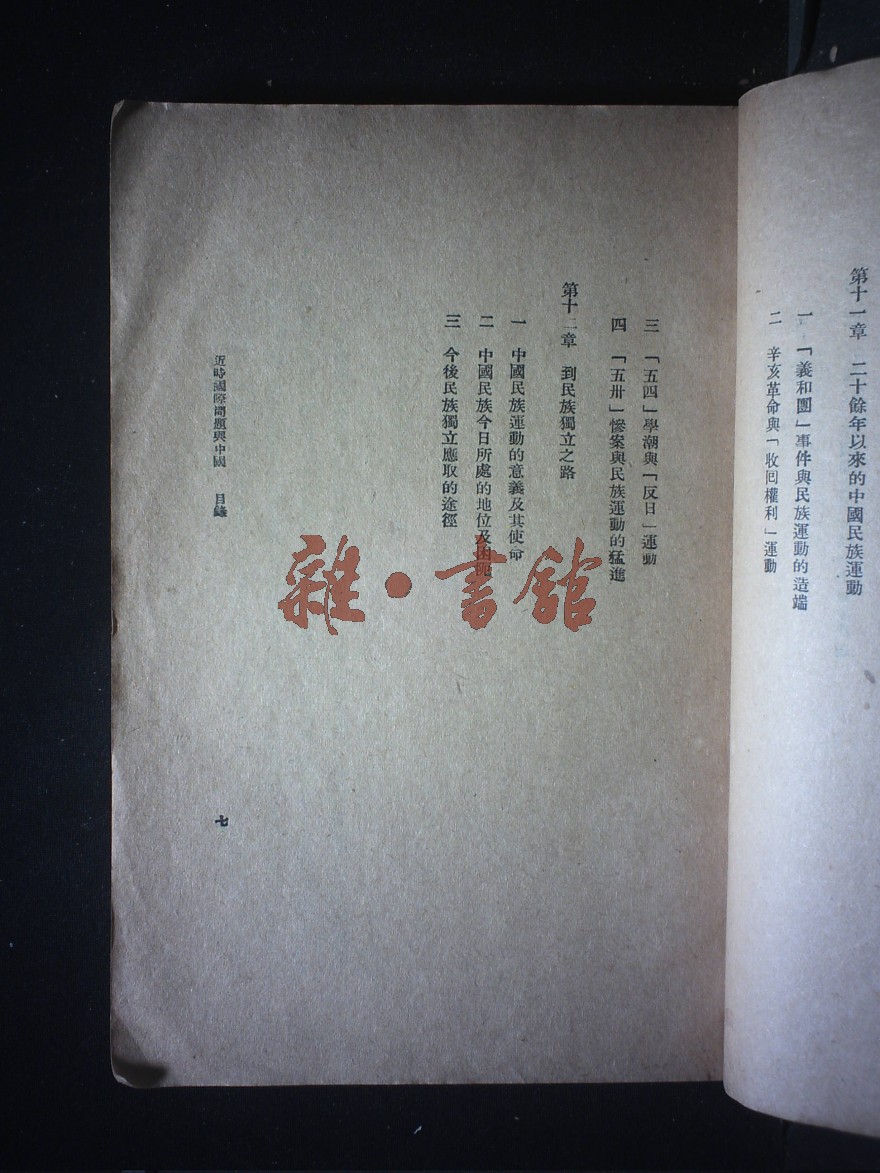 第十一章　二十餘年以來的中國民族運動
一　「義和團」事件與民族運動的造端
二　辛亥革命與「收回權利」運動
三　「五四」學潮與「反日」運動
四　「五卅」慘案與民族運動的猛進
第十二章　到民族獨立之路
一　中國民族運動的意義及其使命
二　中國民族今日所處的地位及困阨
三　今後民族獨立應取的途徑
近時國際問題與中國　目錄
七
雜·書館